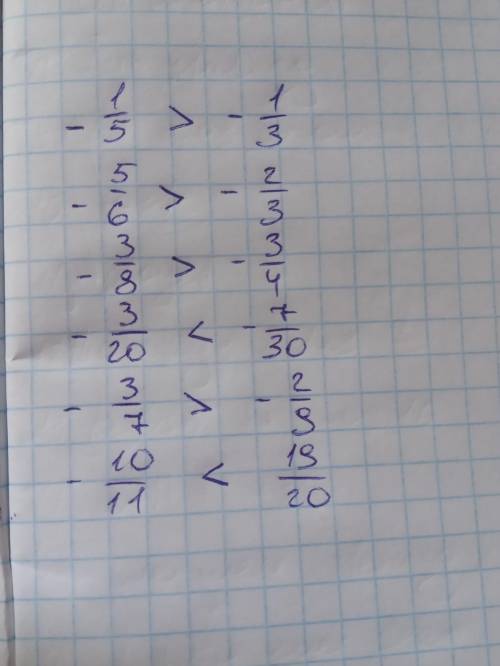 - 1/5 > - 1/3
- 5/6 > - 2/3
- 3/8 > - 3/4
- 3/20 < - 7/30
- 3/7 > - 2/9
- 10/11 < 19/20